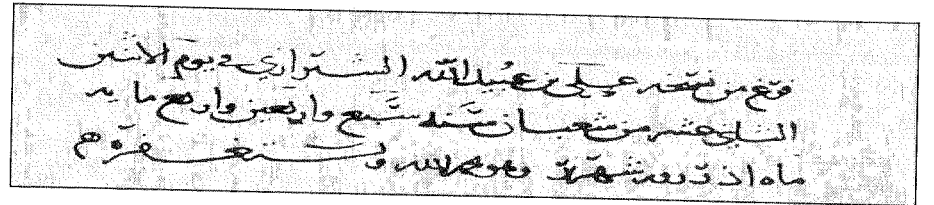 فرغ من نسخه علي بن عبيد الله الشيرازي في يوم الاثنين
الثاني عشر من شعبان سنة سبع واربعين واربع مايه
ماه اذ روز شهر وهو يحمد الله ويستغفره